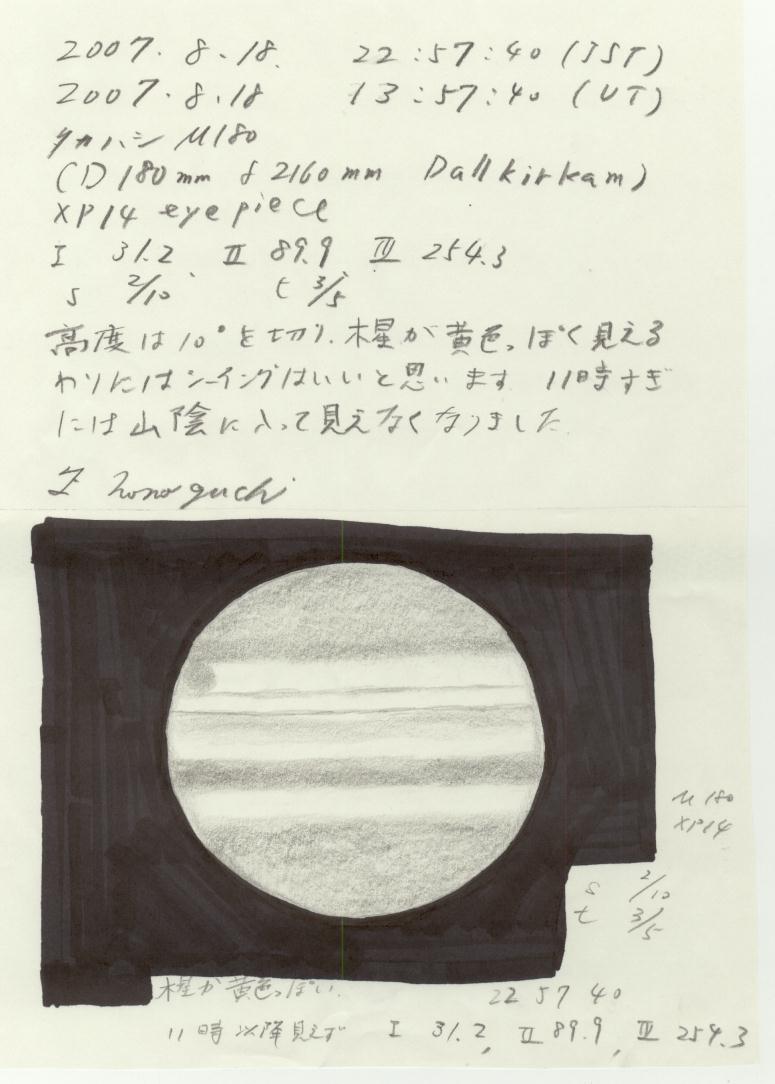 2007. 8. 18. 22:57:40 (JST)
2007. 8. 18 13:57:40 (UT)
タカハシ μ180
(D 180mm f 2160mm Dallkirkam)
XP14 eyepiece
I 31.2 II 89.9 III 254.3
s 2/10 t 3/5
高度は10°を切り、木星が黄色っぽく見える
わりにはシーイングはいいと思います 11時すぎ
には山陰に入って見えなくなりました.
μ180
XP14
s 2/10
t 3/5
木星が黄色っぽい.
22 57 40
11時以降見えず I 31.2, II 89.9, III 254.3